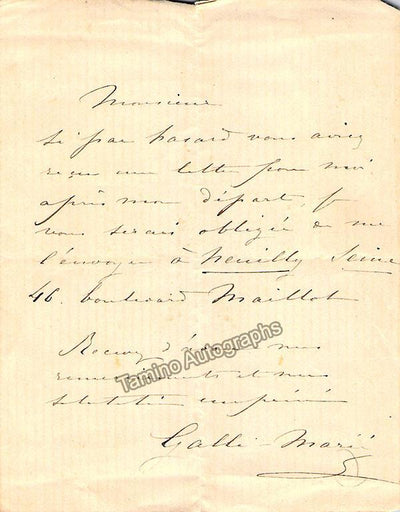 Monsieur
Si par hasard vous aviez
reçu une lettre pour moi
après mon départ, je
vous serais obligée de me
l'envoyer à Neuilly Seine
46. boulevard Maillot
Recevez d'avance mes
remerciements et mes
salutations empressées
Galli Marié
Tamino Autographs